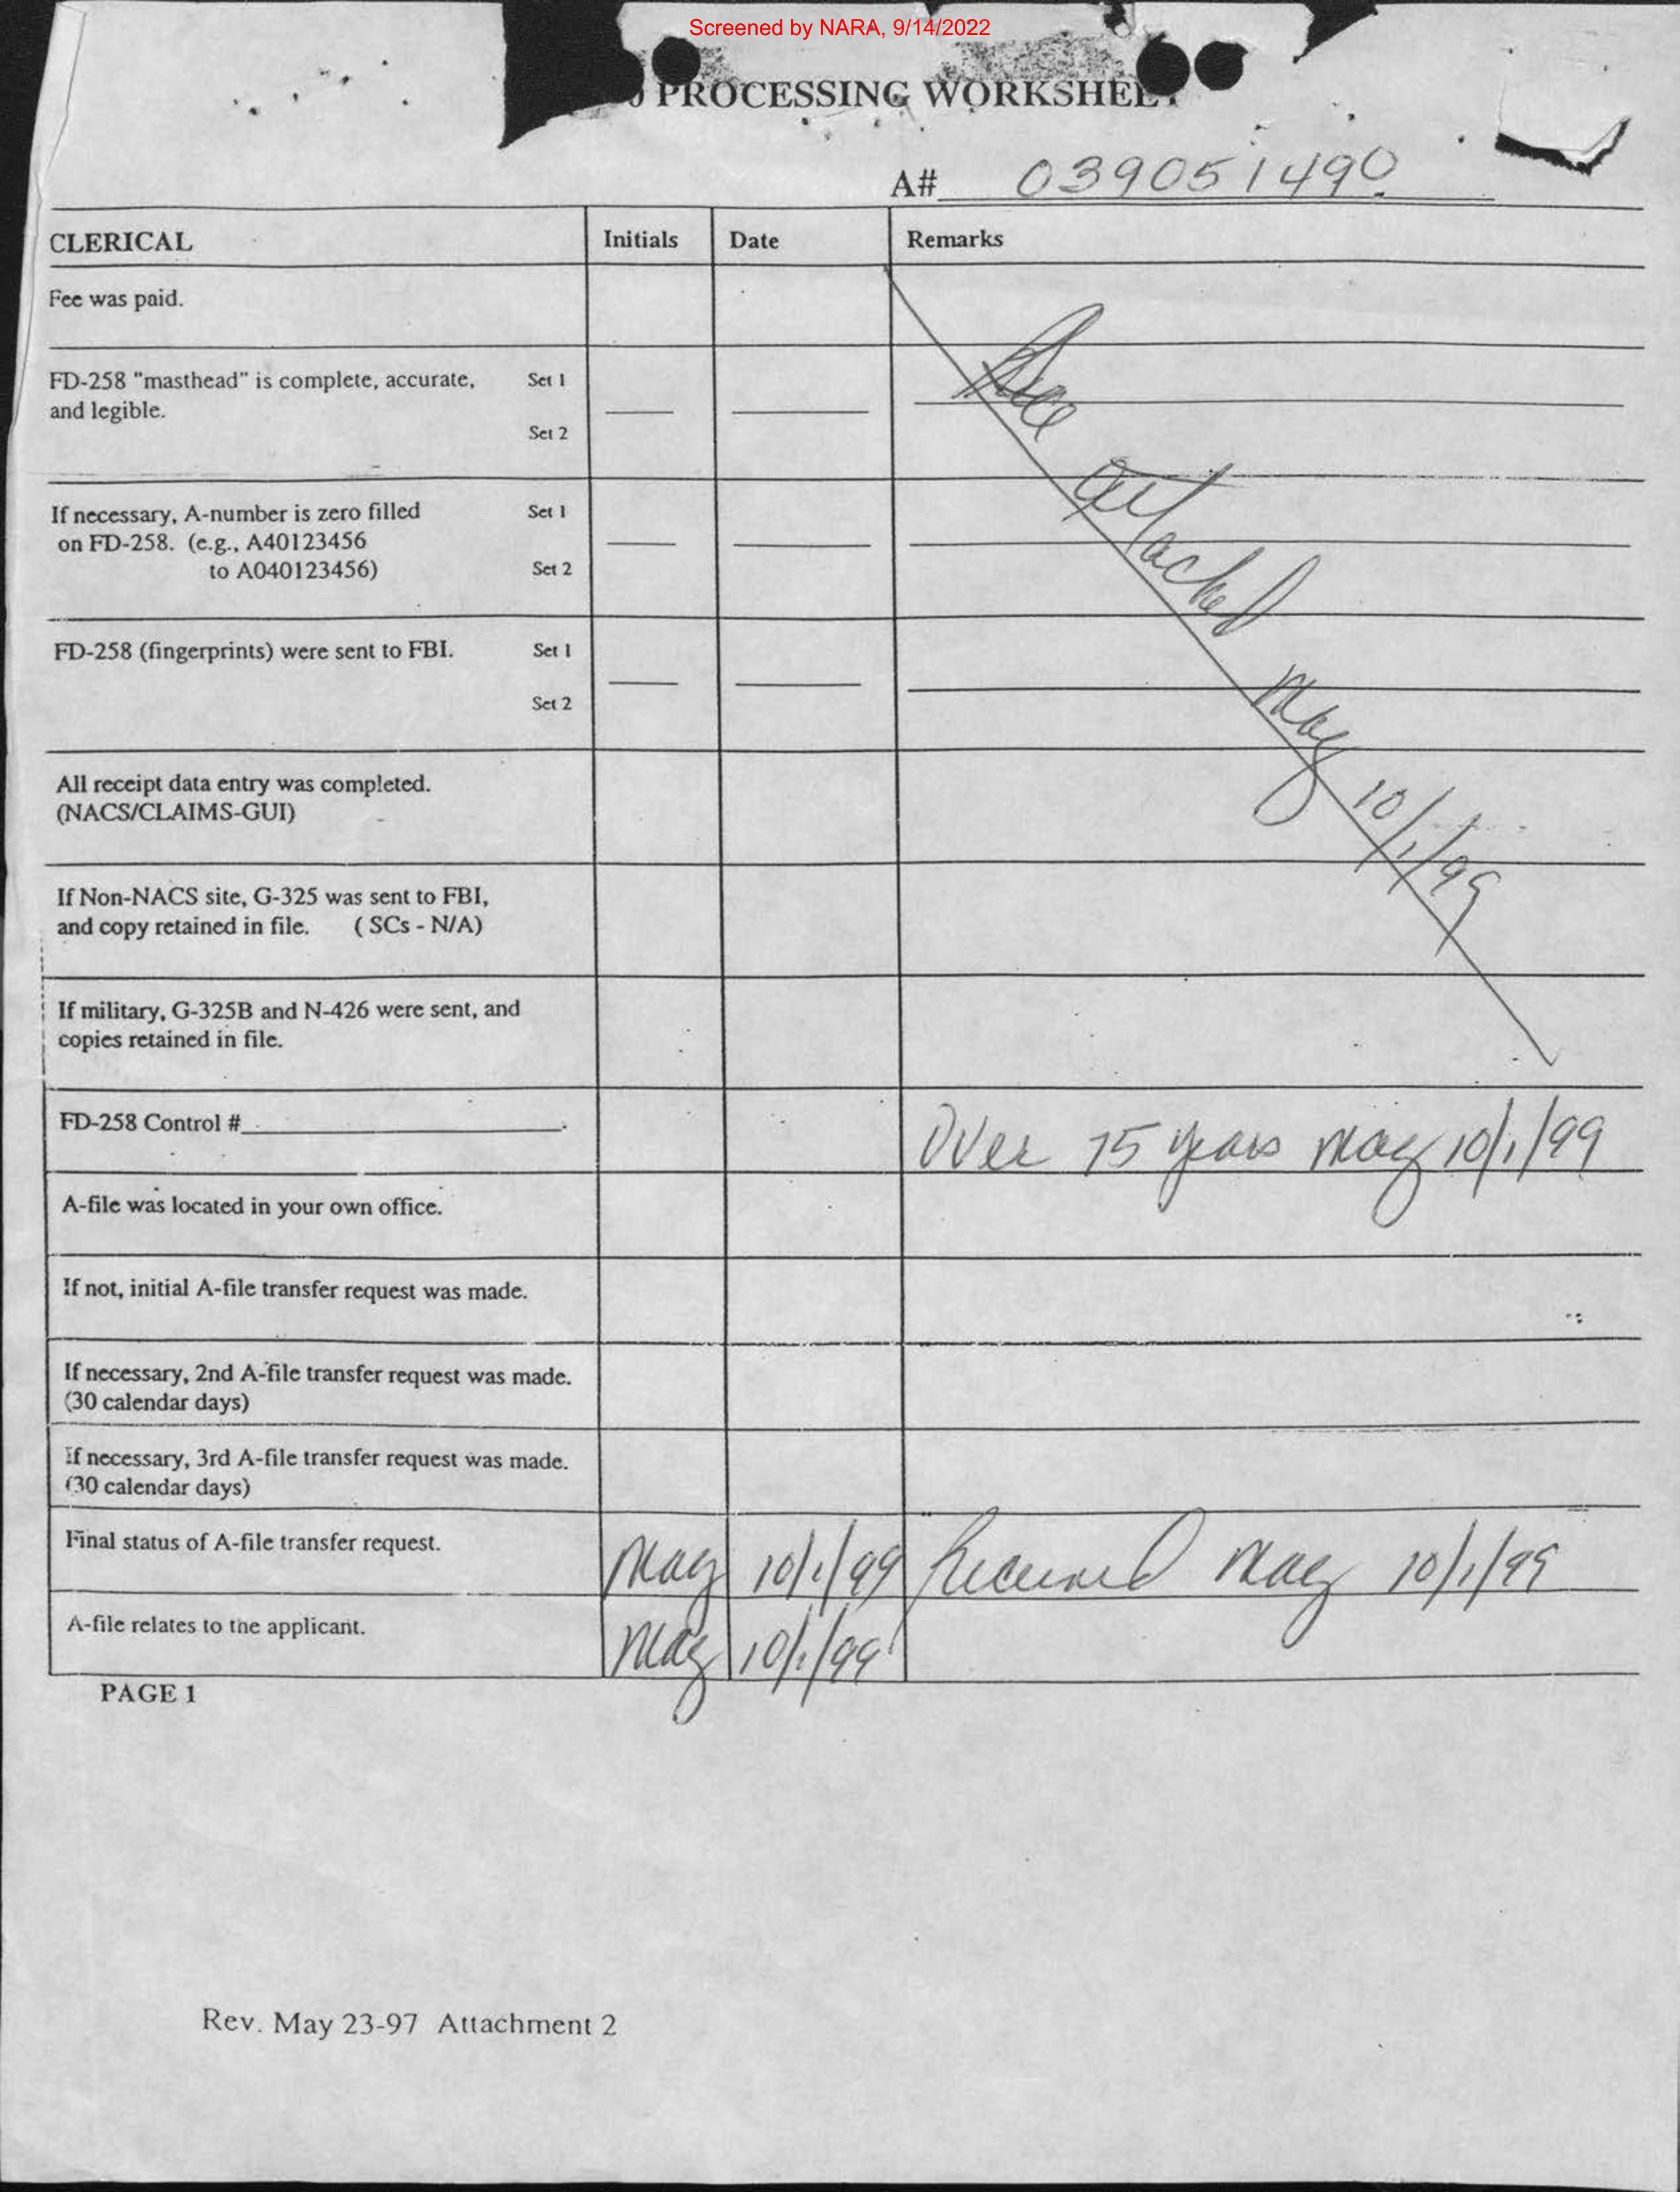 Screened by NARA, 9/14/2022
PROCESSING WORKSHEET
A# 039051490
CLERICAL Initials Date Remarks
Fee was paid.
See attached May 10/1/99
FD-258 "masthead" is complete, accurate, Set 1
and legible.
Set 2
If necessary, A-number is zero filled Set 1
on FD-258. (e.g., A40123456
to A040123456) Set 2
FD-258 (fingerprints) were sent to FBI. Set 1
Set 2
All receipt data entry was completed.
(NACS/CLAIMS-GUI)
If Non-NACS site, G-325 was sent to FBI,
and copy retained in file. ( SCs - N/A)
If military, G-325B and N-426 were sent, and
copies retained in file.
FD-258 Control # Over 75 years 10/1/99
A-file was located in your own office.
If not, initial A-file transfer request was made.
If necessary, 2nd A-file transfer request was made.
(30 calendar days)
If necessary, 3rd A-file transfer request was made.
(30 calendar days)
Final status of A-file transfer request. 10/1/99 Received 10/1/99
A-file relates to the applicant. 10/1/99
PAGE 1
Rev. May 23-97 Attachment 2